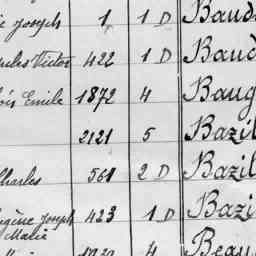 Joseph 1 1 D Baud
Victor 422 1 D Baud
Emile 1872 4 Baug
2121 5 Bazil
Charles 561 2 D Bazil
Eugène Joseph 423 1 D Bazi
Marie
4 Beau